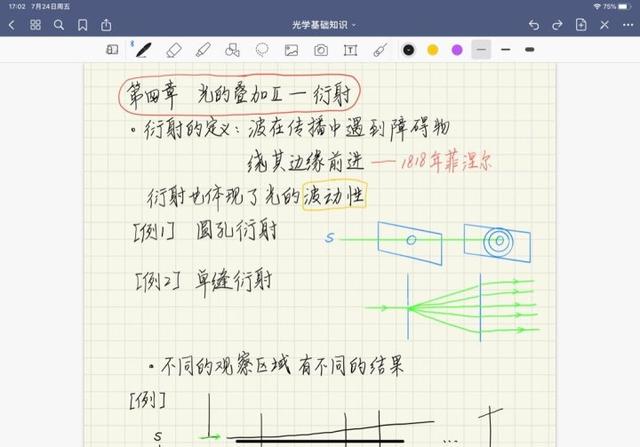 17:02 7月24日周五
75%
光学基础知识
第四章 光的叠加Ⅱ — 衍射
· 衍射的定义: 波在传播中遇到障碍物
绕其边缘前进 — 1818年菲涅尔
衍射也体现了光的波动性
[例1] 圆孔衍射
S
[例2] 单缝衍射
· 不同的观察区域 有不同的结果
[例]
S
...